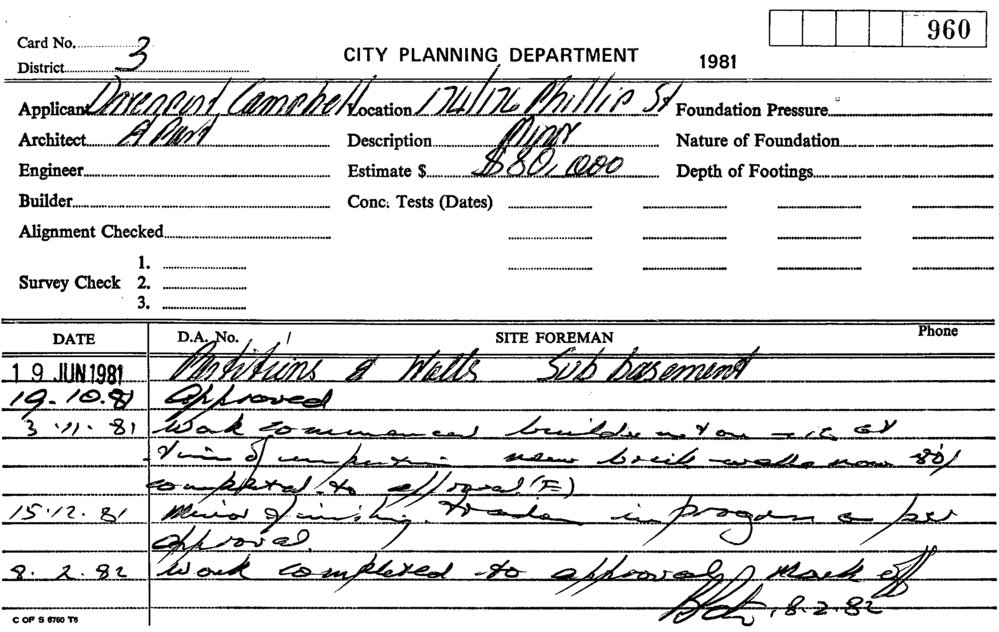 960
Card No. 3
District
CITY PLANNING DEPARTMENT 1981
Applicant Davenport Campbell Location 174/176 Phillip St Foundation Pressure
Architect A Part Description Minor Nature of Foundation
Engineer Estimate $ $80,000 Depth of Footings
Builder Conc. Tests (Dates)
Alignment Checked
1.
Survey Check 2.
3.
DATE D.A. No. / SITE FOREMAN Phone
19 JUN 1981 Partitions & Walls Sub basement
19.10.81 Approved
3.11.81 Work commenced builder not on site at
time of inspection new brick walls now 80%
completed to approval (F)
15.12.81 Minor finishing trades in progress as per
approval.
8.2.82 Work completed to approval, Mark off
8.2.82
C OF S 6760 T6